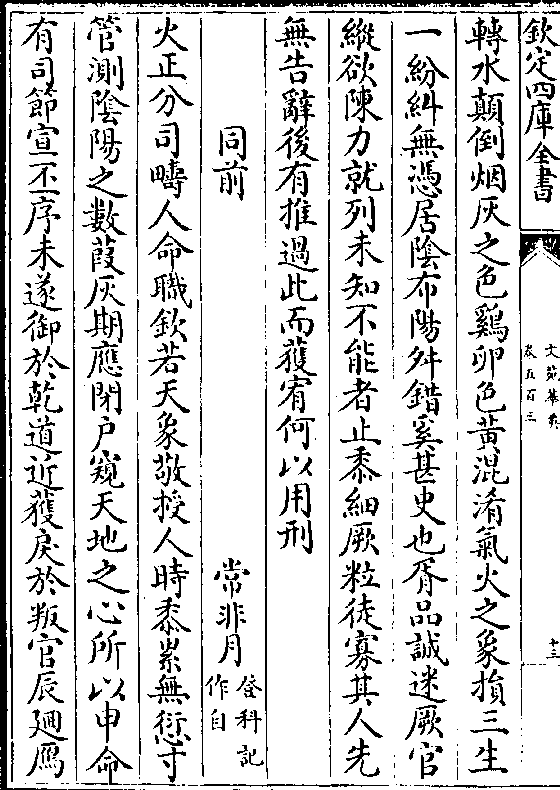 欽定四庫全書
文苑英華
卷五百三
十三
轉水顛倒烟灰之色鷄卵色黃混淆氣火之象損三生
一紛糾無憑居陰布陽舛錯奚甚史也胥品誠迷厥官
縱欲陳力就列未知不能者止黍細厥粒徒寡其人先
無告辭後有推過此而獲宥何以用刑
同前
常非月登科記作自
火正分司疇人命職欽若天象敬授人時黍累無愆寸
管測陰陽之數葭灰期應閉戶窺天地之心所以申命
有司節宣丕序未遂御於乾道近獲戾於叛官辰廻鴈